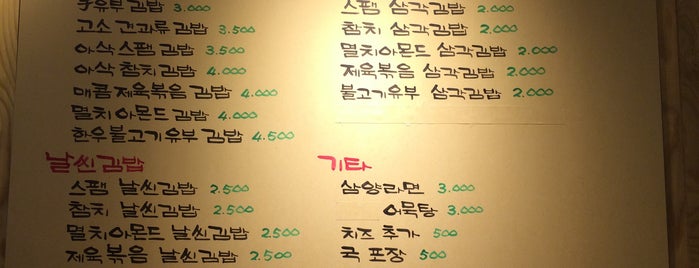 구유부 김밥 3.000
고소 견과류 김밥 3.500
아삭 스팸 김밥 3.500
아삭 참치 김밥 4.000
매콤 제육볶음 김밥 4.000
멸치아몬드 김밥 4.000
한우불고기유부 김밥 4.500
날씬김밥
스팸 날씬김밥 2.500
참치 날씬김밥 2.500
멸치아몬드 날씬김밥 2.500
제육볶음 날씬김밥 2.500
스팸 삼각김밥 2.000
참치 삼각김밥 2.000
멸치아몬드 삼각김밥 2.000
제육볶음 삼각김밥 2.000
불고기유부 삼각김밥 2.000
기타
삼양라면 3.000
어묵탕 3.000
치즈 추가 500
국 포장 500